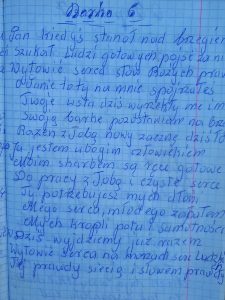 Barka 6
Pan kiedyś stanął nad brzegiem
szukał ludzi gotowych pójść za ni
Wyłowić serca słów Bożych praw
O Panie to Ty na mnie spojrzałeś
Twoje usta dziś wyrzekły me im
Swoją barkę pozostawiam na brze
Razem z Tobą nowy zacznę dziś ło
jestem ubogim człowiekiem
Moim skarbem są ręce gotowe
Do pracy z Tobą i czyste serce
Ty potrzebujesz mych dłoni
Mego serca młodego zapałem
Mych kropli potu i samotności
Dziś wyjedziemy już razem
Wyłowić serca na morzach ludzk
Tej prawdy siecią i słowem praw